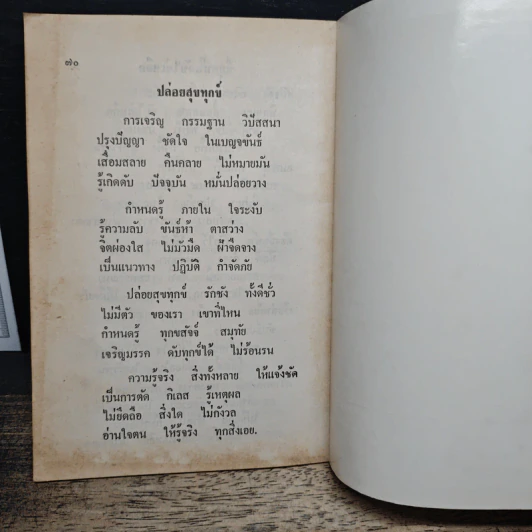 ๗๐
ปล่อยสุขทุกข์
การเจริญ กรรมฐาน วิปัสสนา
ปรุงปัญญา ชัดใจ ในเบญจขันธ์
เสื่อมสลาย คืนคลาย ไม่หมายมัน
รู้เกิดดับ ปัจจุบัน หมั่นปล่อยวาง
กำหนดรู้ ภายใน ใจระงับ
รู้ความลับ ขันธ์ห้า ตาสว่าง
จิตผ่องใส ไม่มัวมืด ฝ้าจืดจาง
เป็นแนวทาง ปฏิบัติ กำจัดภัย
ปล่อยสุขทุกข์ รักชัง ทั้งดีชั่ว
ไม่มีตัว ของเรา เขาที่ไหน
กำหนดรู้ ทุกขสัจจ์ สมุทัย
เจริญมรรค ดับทุกข์ได้ ไม่ร้อนรน
ความรู้จริง สิ่งทั้งหลาย ให้แจ้งชัด
เป็นการตัด กิเลส รู้เหตุผล
ไม่ยึดถือ สิ่งใด ไม่กังวล
อ่านใจตน ให้รู้จริง ทุกสิ่งเอย.